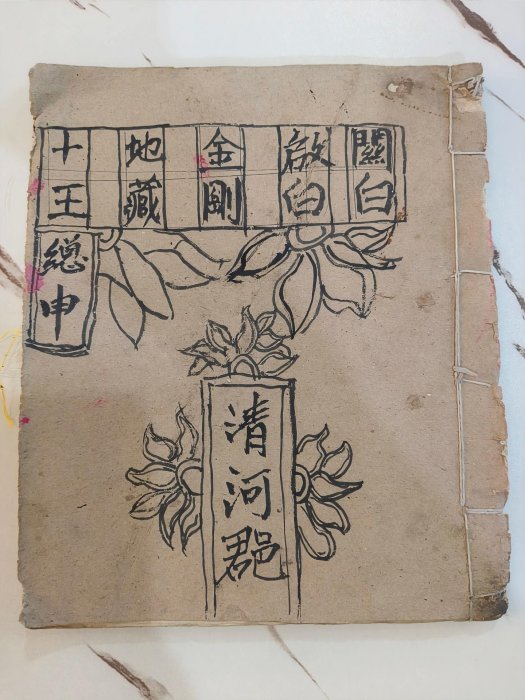 關白
啟白
金剛
地藏
十王
總申
清河郡